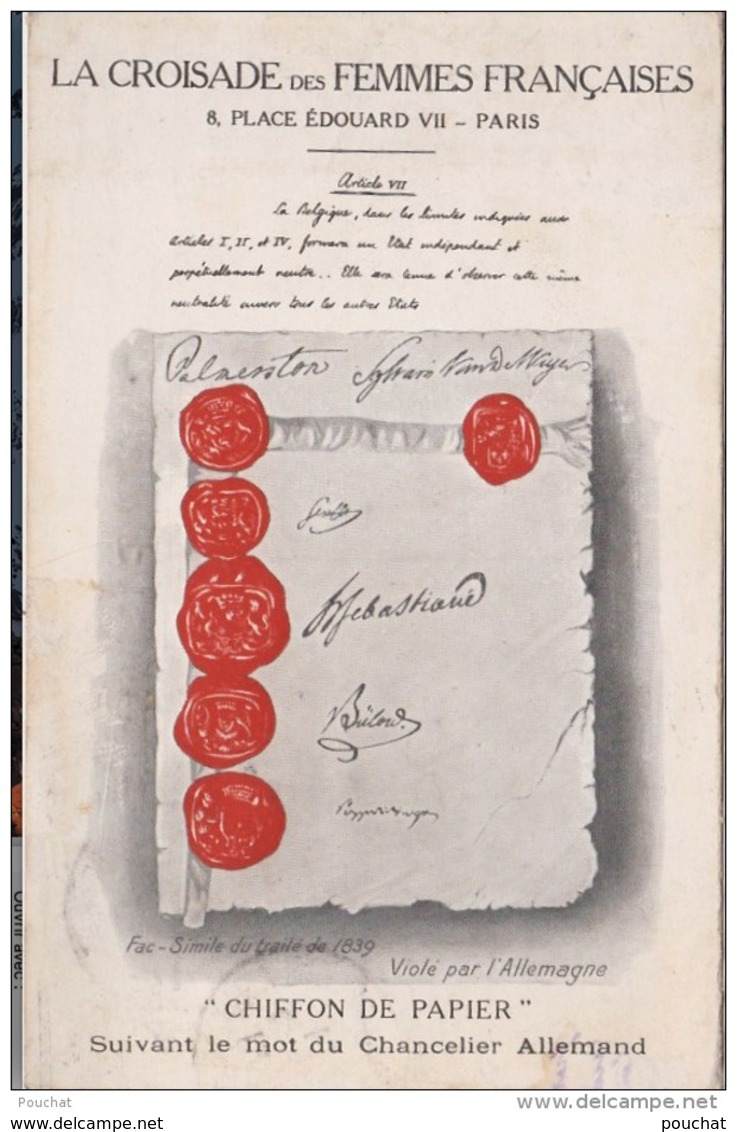 LA CROISADE DES FEMMES FRANÇAISES
8, PLACE ÉDOUARD VII – PARIS
Article VII
La Belgique, dans les limites indiquées aux
articles I, II, et IV, formera un Etat indépendant et
perpétuellement neutre.. Elle sera tenue d'observer cette même
neutralité envers tous les autres Etats
Palmerston Sylvain Van de Weyer
Senfft
H Sebastiani
Bülow.
Fac-Simile du traité de 1839
Violé par l'Allemagne
" CHIFFON DE PAPIER "
Suivant le mot du Chancelier Allemand
Ouvrir avec :
Pouchat
www.delcampe.net
www.delcampe.net
pouchat